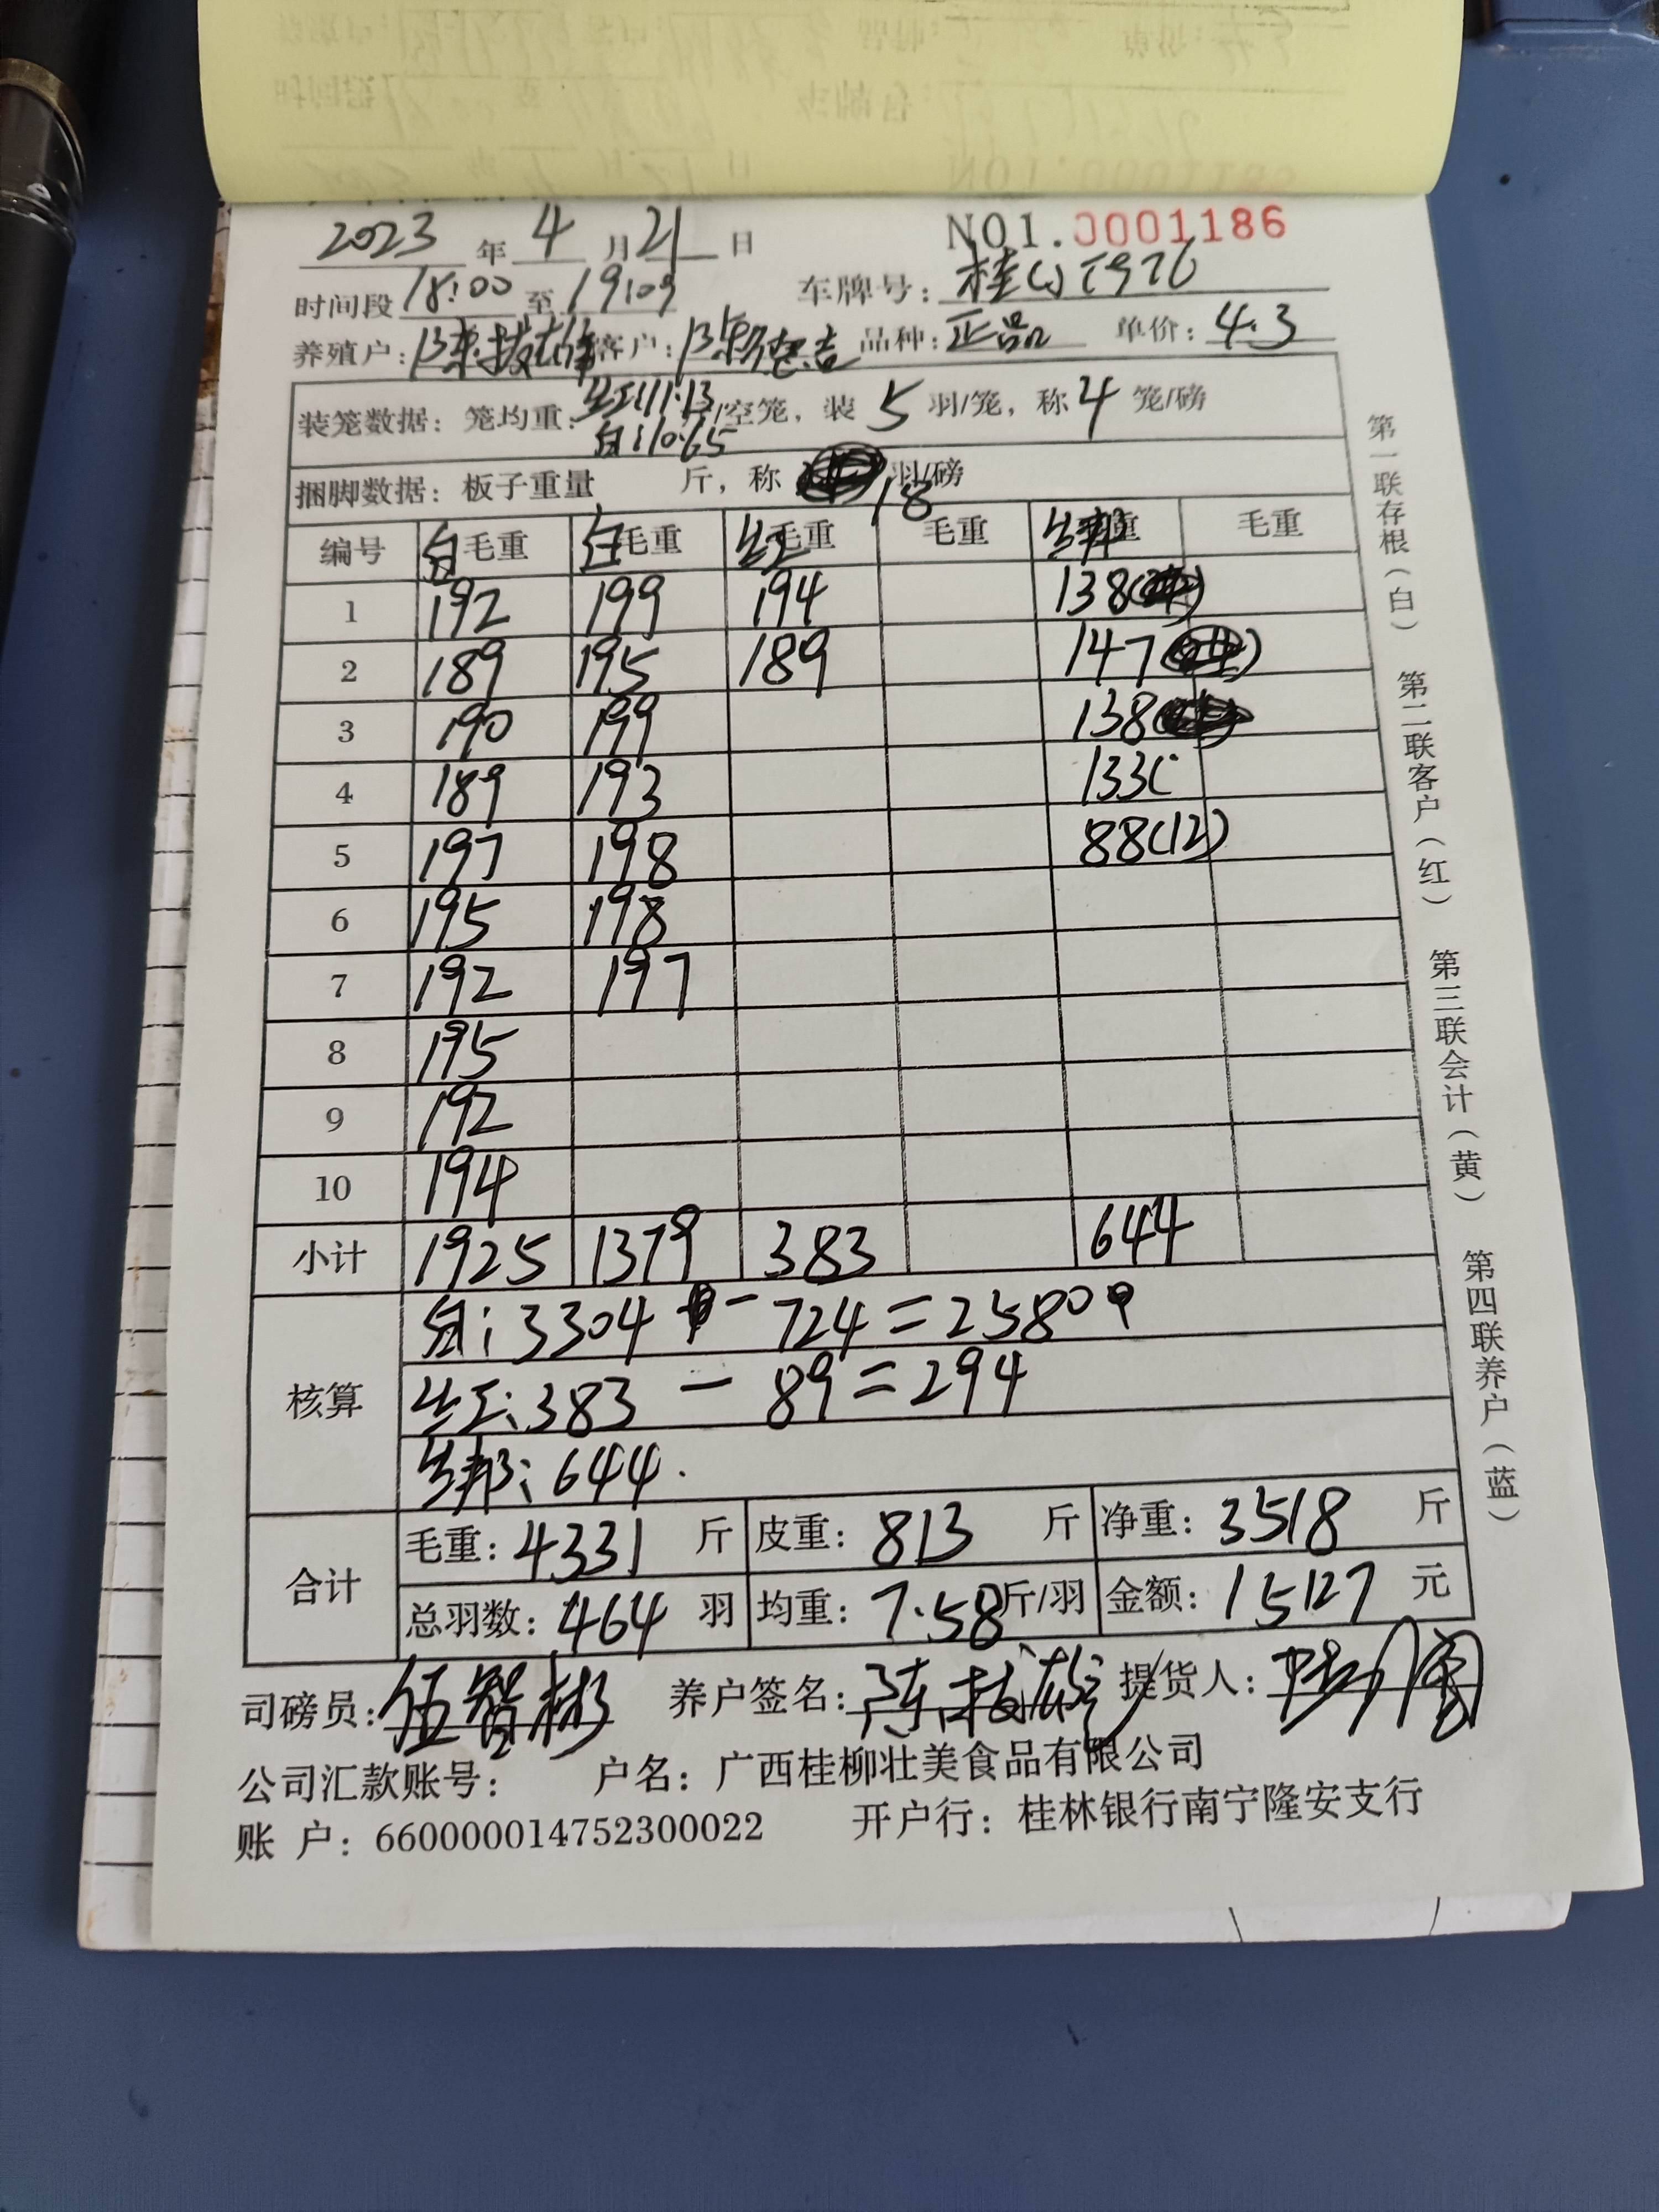 2023 年 4 月 21 日 NO1.0001186
时间段 18:00 至 19:09 车牌号:
养殖户: 陈 客户: 陈 品种: 正品 单价: 4.3
装笼数据: 笼均重: 红:11.13 斤/空笼, 装 5 羽/笼, 称 4 笼/磅
白:10.65
捆脚数据: 板子重量 斤, 称 18 羽/磅
编号 白毛重 白毛重 红毛重 毛重 毛重 毛重
1 192 199 194 138
2 189 195 189 147
3 190 199 138
4 189 193 133(
5 197 198 88(12)
6 195 198
7 192 197
8 195
9 192
10 194
小计 1925 1379 383 644
核算 白: 3304 - 724 = 2580
红: 383 - 89 = 294
绑: 644.
合计 毛重: 4331 斤 皮重: 813 斤 净重: 3518 斤
总羽数: 464 羽 均重: 7.58 斤/羽 金额: 15127 元
司磅员: 伍智彬 养户签名: 陈 提货人:
公司汇款账号: 户名: 广西桂柳壮美食品有限公司
账 户: 660000014752300022 开户行: 桂林银行南宁隆安支行
第一联存根(白) 第二联客户(红) 第三联会计(黄) 第四联养户(蓝)